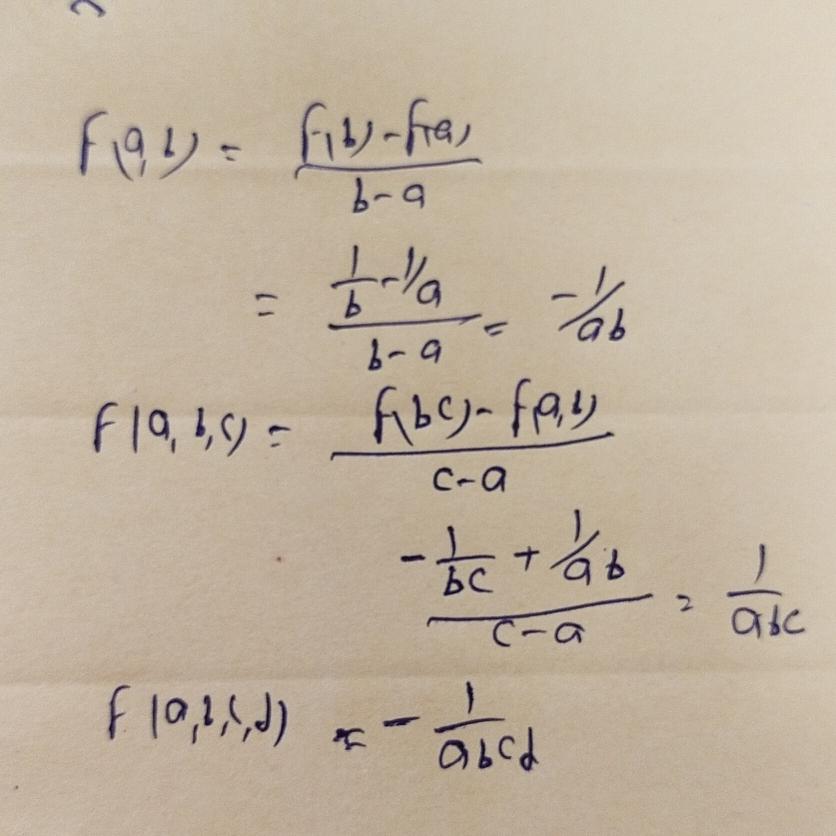 f(a,b) = (f(b) - f(a)) / (b - a)
= (1/b - 1/a) / (b - a) = -1/ab
f(a,b,c) = (f(bc) - f(a,b)) / (c - a)
(-1/bc + 1/ab) / (c - a) = 1/abc
f(a,b,c,d) = -1/abcd